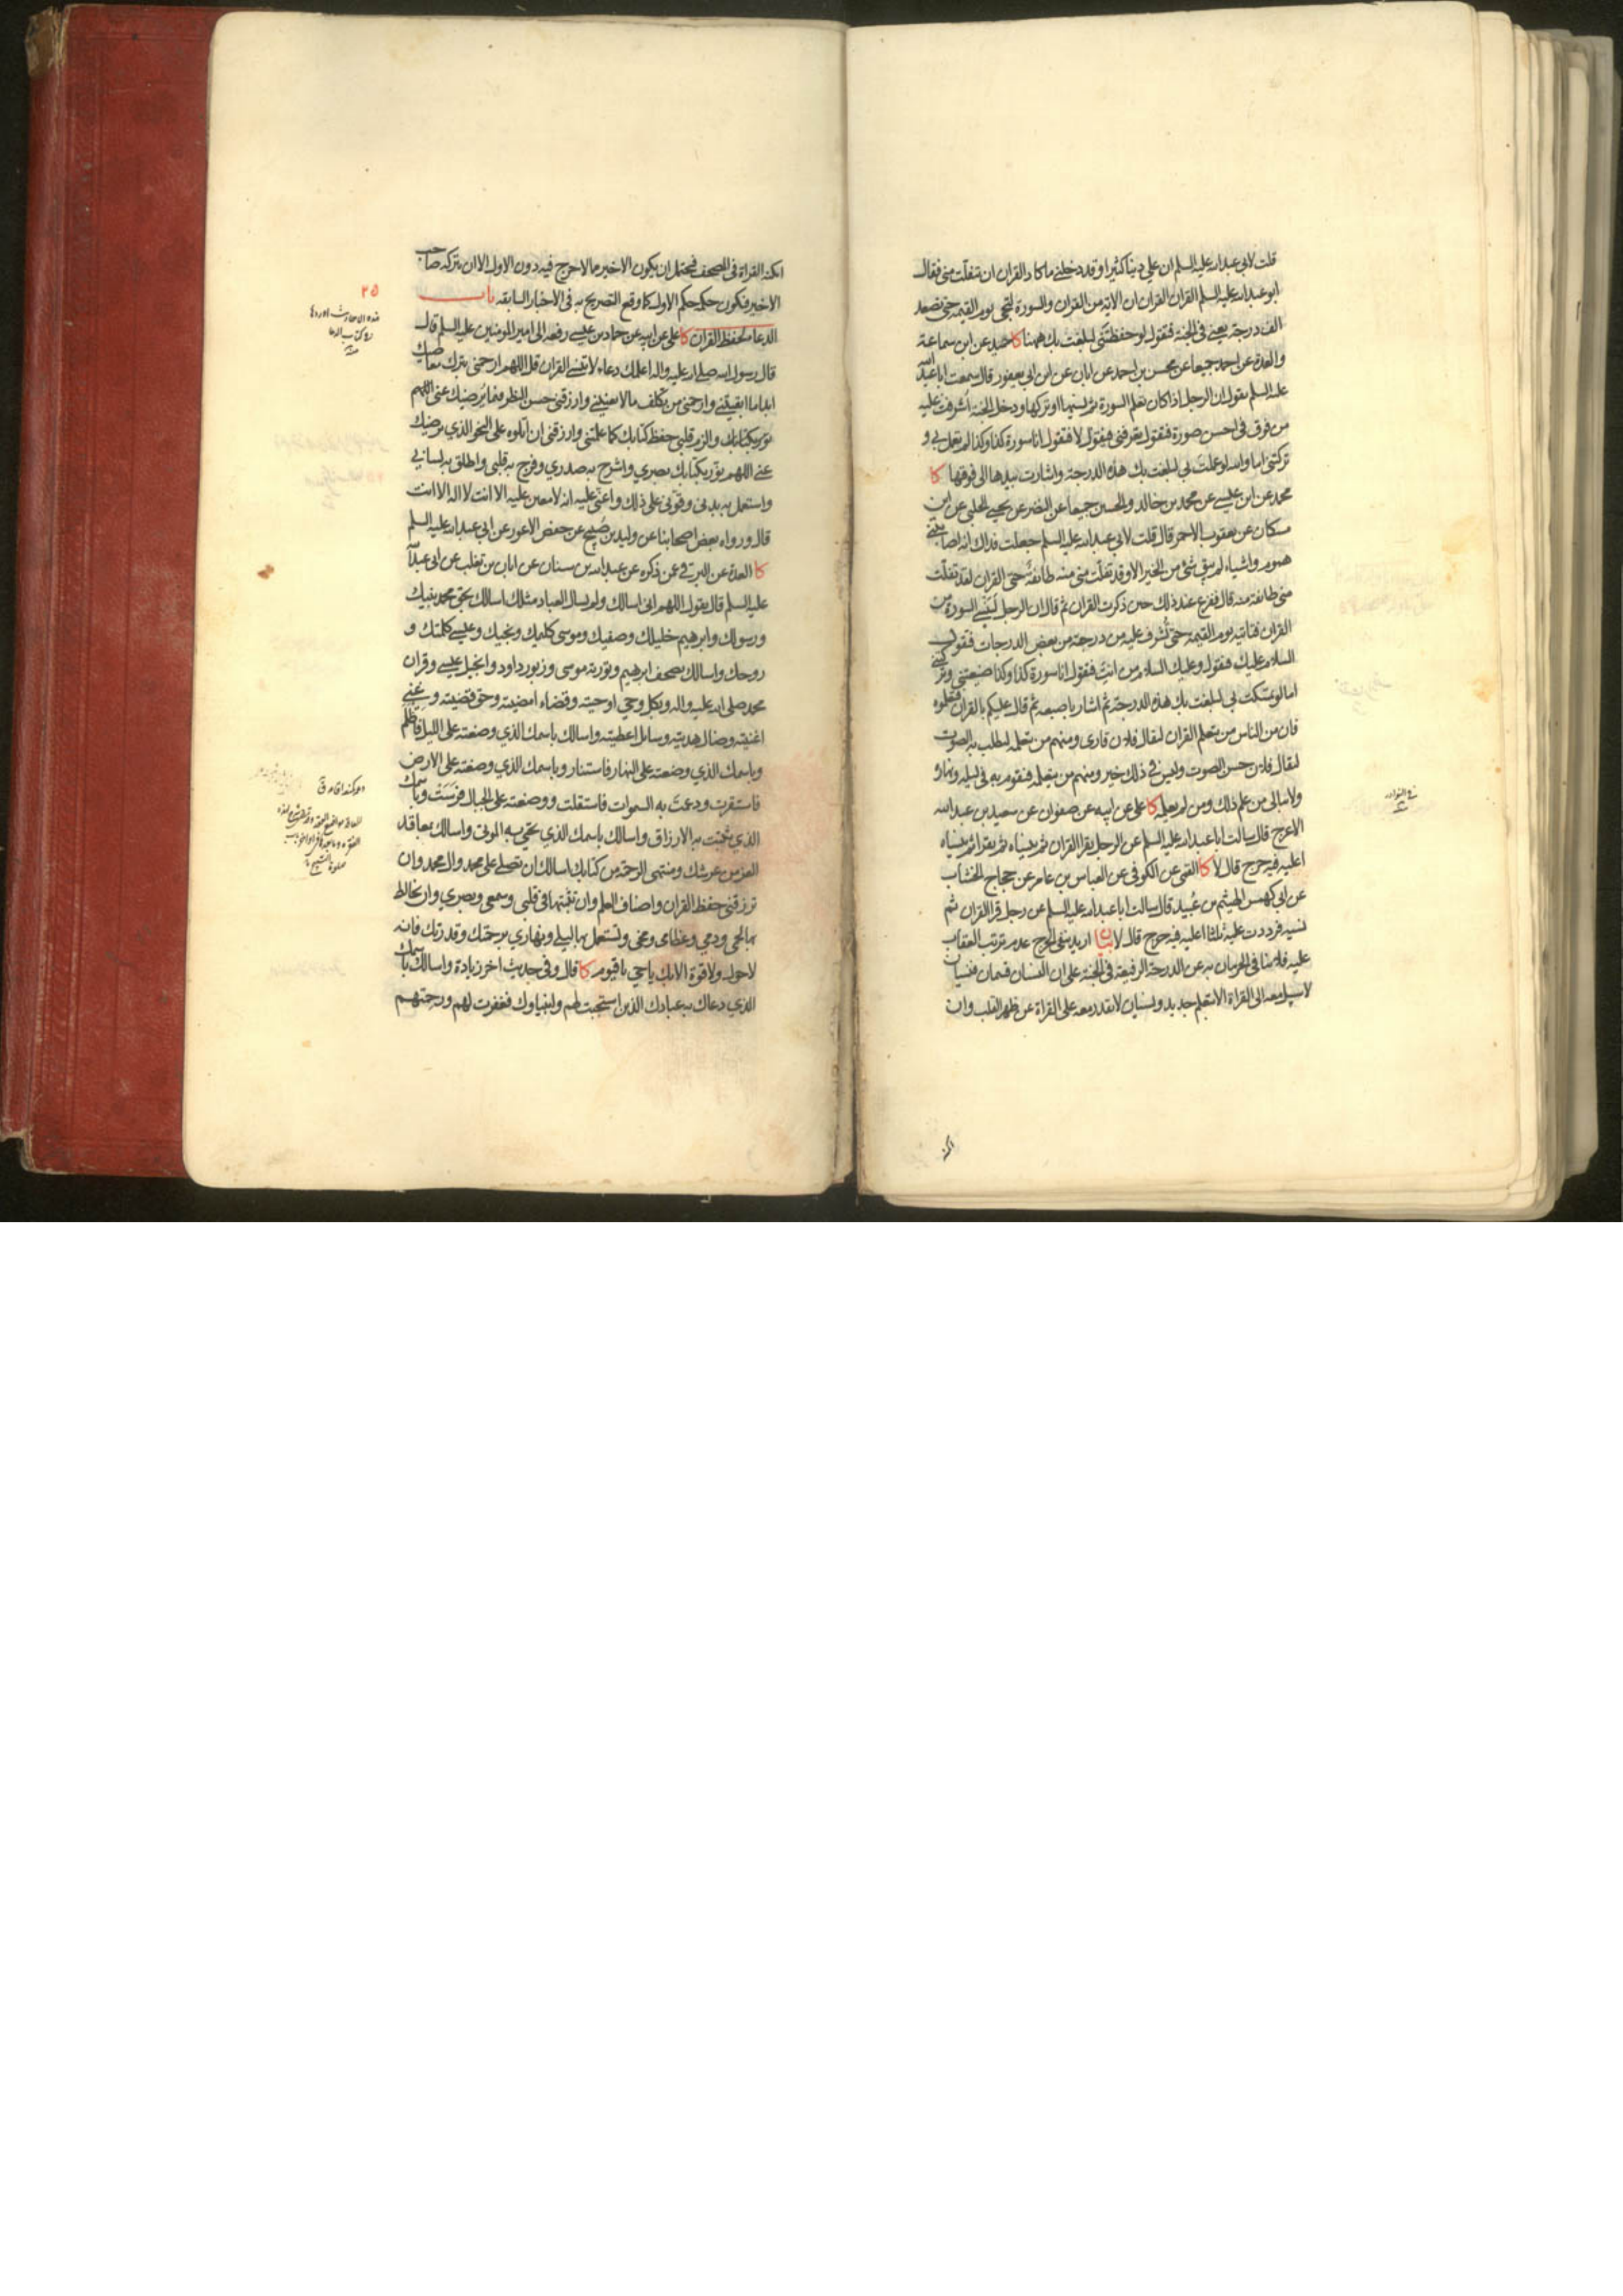 قلت لابي عبدالله عليه السلم ان علي دينا كثيرا وقد دخلني ما كاد القران ان يتفلّت مني فقال
ابو عبدالله عليه السلم القران القران ان الاية من القران والسورة لتجي يوم القيمه حتى تصعد
الف درجة يعني في الجنة فتقول لو حفظتني لبلغت بك ههنا كا حميد عن ابن سماعة
والعدة عن احمد جميعا عن محسن بن احمد عن ابان عن ابن ابي يعفور قال سمعت ابا عبدالله
عليه السلم يقول ان الرجل اذا كان تعلم السورة ثم نسيها او تركها ودخل الجنة اشرفت عليه
من فوق في احسن صورة فتقول تعرفني فيقول لا فتقول انا سورة كذا وكذا لم تعمل بي و
تركتني اما والله لو عملت بي لبلغت بك هذه الدرجة واشارت بيدها الى فوقها كا
محمد عن ابن عيسى عن محمد بن خالد والحسين جميعا عن النضر عن يحيى الحلبي عن ابن
مسكان عن يعقوب الاحمر قال قلت لابي عبدالله عليه السلم جعلت فداك انه اصابتني
هموم واشياء لم يبق شئ من الخير الا وقد تفلّت مني منه طائفة حتى القران لقد تفلّت
مني طائفة منه قال ففزع عند ذلك حين ذكرت القران ثم قال ان الرجل لينسى السورة من
القران فتاتيه يوم القيمه حتى تُشرف عليه من درجة من بعض الدرجات فتقول
السلام عليك فيقول وعليك السلام من انت فتقول انا سورة كذا وكذا ضيعتني وتركتني
اما لو تمسكت بي لبلغت بك هذه الدرجة ثم اشار باصبعه ثم قال عليكم بالقران فتعلموه
فان من الناس من يتعلم القران ليقال فلان قارى ومنهم من يتعلمه ليطلب به الصوت
ليقال فلان حسن الصوت وليس في ذلك خير ومنهم من يتعلمه فيقوم به في ليله ونهاره
ولا يبالي من علم ذلك ومن لم يعلمه كا علي عن ابيه عن صفوان عن سعيد بن عبدالله
الاعرج قال سالت ابا عبدالله عليه السلم عن الرجل يقرا القران ثم ينساه ثم يقراه ثم ينساه
اعليه فيه حرج قال لا كا القمي عن الكوفي عن العباس بن عامر عن حجاج الخشاب
عن ابي كهمس الهيثم بن عُبيد قال سالت ابا عبدالله عليه السلم عن رجل قرا القران ثم
نسيه فرددت عليه ثلثا اعليه فيه حرج قال لا بيان اريد بنفي الحرج عدم ترتب العقاب
عليه فلا ينافي الحرمان به عن الدرجة الرفيعة في الجنة على ان النسيان قسمان فنسيان
لا سبيل معه الى القراة الا بتعلم جديد ونسيان لا يقدر معه على القراة عن ظهر القلب وان
في النوادر
امكنه القراة في المصحف فيحتمل ان يكون الاخير مما لا حرج فيه دون الاول الا ان يتركه صاحب
الاخير فيكون حكمه حكم الاول كما وقع التصريح به في الاخبار السابقه باب
الدعاء لحفظ القران كا علي عن ابيه عن حماد بن عيسى رفعه الى امير المومنين عليه السلم قال
قال رسول الله صلى الله عليه واله اعلمك دعاء لا تنسى القران قل اللهم ارحمني بترك معاصيك
ابدا ما ابقيتني وارحمني من تكلف ما لا يعنيني وارزقني حسن النظر فيما يُرضيك عني اللهم
نور بكتابك والزم قلبي حفظ كتابك كما علمتني وارزقني ان اتلوه على النحو الذي يرضيك
عني اللهم نوّر بكتابك بصري واشرح به صدري وفرج به قلبي واطلق به لساني
واستعمل به بدني وقوّني على ذلك واعنّي عليه انه لا معين عليه الا انت لا اله الا انت
قال ورواه بعض اصحابنا عن وليد بن صُبيح عن حفص الاعور عن ابي عبدالله عليه السلم
كا العدة عن البرقي عمن ذكره عن عبدالله بن سنان عن ابان بن تغلب عن ابي عبدالله
عليه السلم قال يقول اللهم اني اسالك ولم يسال العباد مثلك اسالك بحق محمد نبيك
ورسولك وابرهيم خليلك وصفيك وموسى كليمك ونجيك وعيسى كلمتك و
روحك واسالك بصحف ابرهيم وتورية موسى وزبور داود وانجيل عيسى وقران
محمد صلى الله عليه واله وبكل وحي اوحيته وقضاء امضيته وحق قضيته وغني
اغنيته وضال هديته وسائل اعطيته واسالك باسمك الذي وضعته على الليل فاظلم
وباسمك الذي وضعته على النهار فاستنار وباسمك الذي وضعته على الارض
فاستقرت ودعمت به السموات فاستقلت ووضعته على الجبال فرسَت وباسمك
الذي بثثت به الارزاق واسالك باسمك الذي تحيي به الموتى واسالك بمعاقد
العز من عرشك ومنتهى الرحمة من كتابك اسالك ان تصلي على محمد وال محمد وان
ترزقني حفظ القران واصناف العلم وان تثبتها في قلبي وسمعي وبصري وان تخالط
بها لحمي ودمي وعظامي ومخي وتستعمل بها ليلي ونهاري برحمتك وقدرتك فانه
لا حول ولا قوة الا بك يا حي يا قيوم كا قال وفي حديث اخر زيادة واسالك باسمك
الذي دعاك به عبادك الذين استجبت لهم وانبياوك فغفرت لهم ورحمتهم
٢٥
هذه الاحاديث اوردها
في كتاب الدعا